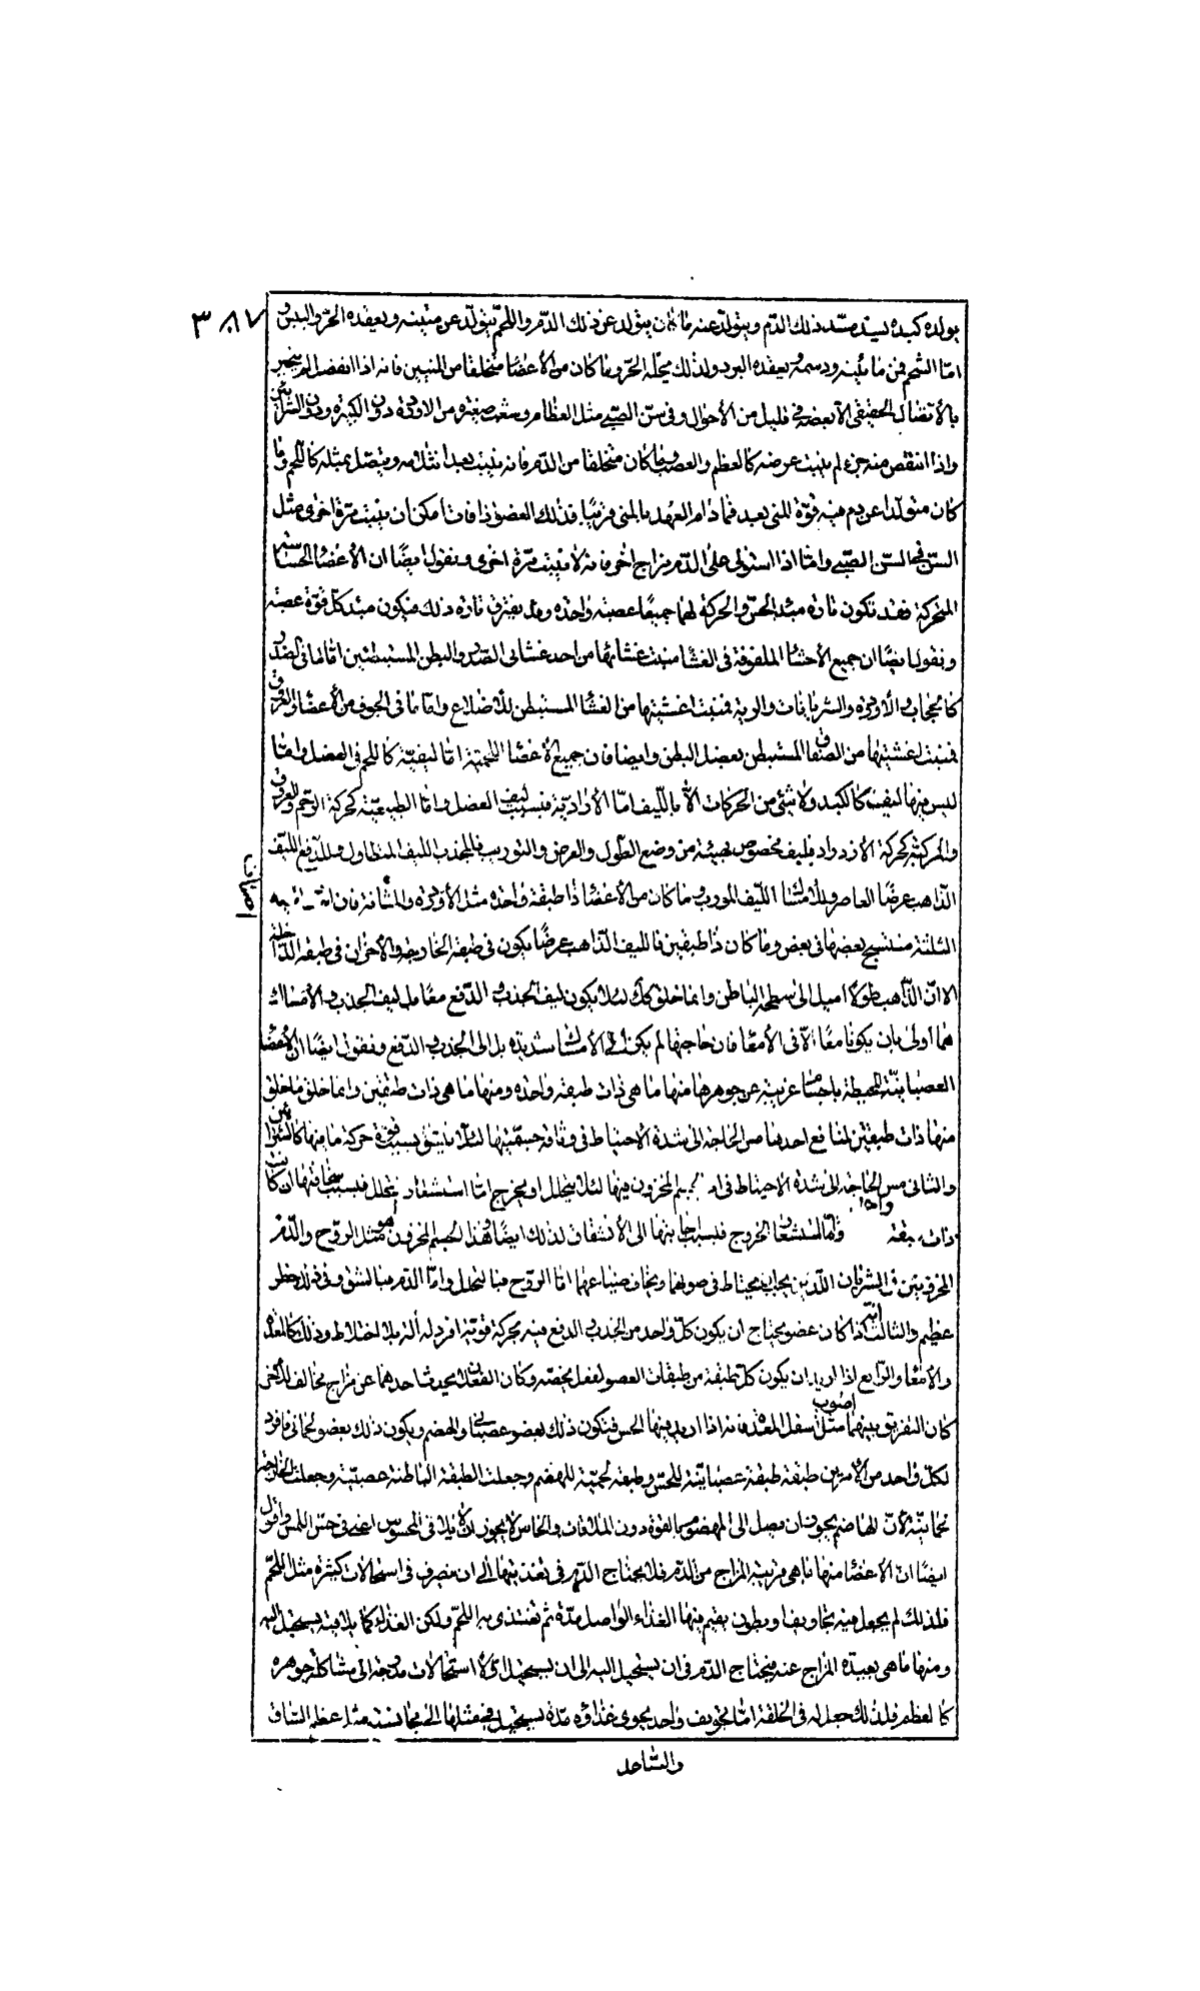 ٣٨٧
يولده كبده يسد مسد ذلك الدم ويتولد عنه ما كان يتولد عن ذلك الدم واللحم يتولد عن متينه ويعقده الحر واليبس و
اما الشحم فمن مائيته ودسمه ويعقده البرد ولذلك يحله الحر وما كان من الأعضاء متخلقا من المنيين فانه اذا انفصل لم ينجبر
بالأتصال الحقيقي الا بعضه في قليل من الأحوال وفي سن الصبى مثل العظام وشعب صغيرة من الاوردة دون الكبيرة ودون الشرائين
واذا انتقص منه جزء لم ينبت عوضه كالعظم والعصب وما كان متخلقا من الدم فانه ينبت بعد انثلامه ويتصل بمثله كاللحم وما
كان متولدا عن دم فيه قوة المنى بعد فما دام العهد بالمنى قريبا فذلك العضو اذا فات امكن ان ينبت مرة اخرى مثل
السن في السن الصبى واما اذا استولى على الدم مزاج اخر فانه لا ينبت مرة اخرى ونقول ايضا ان الأعضاء الحساسة
المتحركة فقد تكون تارة مبدء الحس والحركة لهما جميعا عصبة واحدة وقد يفترق تارة ذلك فيكون مبدء كل قوة عصبة
ونقول ايضا ان جميع الأحشاء الملفوفة في الغشاء منبت غشائها من احد غشائى الصدر والبطن المستبطنين اما ما في الصدر
كالحجاب والأوردة والشريانات والرية فمنبت اغشيتها من الغشاء المستبطن للأضلاع واما ما في الجوف من الأعضاء والعروق
فمنبت اغشيتها من الصفاق المستبطن بعضل البطن وايضا فان جميع الأعضاء اللحمية اما ليفية كاللحم في العضل واما
ليس فيها ليف كالكبد ولا شئ من الحركات الا بالليف اما الأرادية فبسبب ليف العضل واما الطبيعية كحركة الرحم والعروق
والمركبة كحركة الازدراد بليف مخصوص بهيئة من وضع الطول والعرض والتوريب فللجذب الليف المتطاول وللدفع الليف
الذاهب عرضا العاصر وللأمساك الليف المورب وما كان من الأعضاء ذا طبقة واحدة مثل الأوردة والمثانة فان
اصناف
الثلثة منتسج بعضها في بعض وما كان ذا طبقتين فالليف الذاهب عرضا يكون في طبقة الخارجة والأخران في طبقة الداخلة
الا ان الذاهب طولا اميل الى سطح الباطن وانما خلق كك لئلا يكون ليف الجذب و الدفع معا بل ليف الجذب و الأمساك
هما اولى بان يكونا معا الا في الأمعاء فان حاجتها لم يكن الى الأمساك شديدة بل الى الجذب و الدفع ونقول ايضا ان الأعضاء
العصبانية المحيطة باجسام غريبة عن جوهرها منها ما هى ذات طبقة واحدة ومنها ما هى ذات طبقتين وانما خلق ما خلق
منها ذات طبقتين لمنافع احدها مس الحاجة الى شدة الاحتياط في وثاقة جسميتها لئلا ينشق بسبب قوة حركة ما فيها كالشرائين
والثانى مس الحاجة الى شدة الاحتياط في امر الجسم المخزون فيها لئلا يتحلل او يخرج اما استشعار التحلل فبسبب سخافتها ان كانت
ذات طبقة واحدة واما استشعار الخروج فبسبب اجابتها الى الأنشقاق لذلك ايضا وهذا الجسم المخزون هو مثل الروح والدم
المخزونين في الشريان اللذين يجب ان يحتاط في صونهما ويخاف ضياعهما اما الروح فبالتحلل واما الدم فبالشق وفي ذلك خطر
عظيم والثالث انه اذا كان عضو يحتاج ان يكون كل واحد من الجذب و الدفع فيه بحركة قوية افرد له آلة بلا اختلاط وذلك كالمعدة
والأمعاء والرابع اذا اريد ان يكون كل طبقة من طبقات العضو لفعل يخصه وكان الفعلان يحدث احدهما عن مزاج مخالف للأخر
كان التفريق بينهما اصوب مثل سفل المعدة فانه اذا اريد فيها الحس فيكون ذلك بعضو عصبانى والهضم ويكون ذلك بعضو لحمانى فافرد
لكل واحد من الأمرين طبقة طبقة عصبانية للحس وطبقة لحمية للهضم وجعلت الطبقة الباطنة عصبية وجعلت الخارجة
لحمانية لأن الهاضم يجوز ان يصل الى المهضوم بالقوة دون الملاقات والحاس لا يجوز ان لا يلاقى المحسوس اعنى في حس اللمس واقول
ايضا ان الاعضاء منها ما هى قريبة المزاج من الدم فلا يحتاج الدم في تغذيتها الى ان يتصرف في استحالات كثيرة مثل اللحم
فلذلك لم يجعل فيه تجاويف وبطون يقيم فيها الغذاء الواصل مدة ثم تغتذى به اللحم ولكن الغذاء كما يلاقيه يستحيل اليه
ومنها ما هى بعيدة المزاج عنه فيحتاج الدم في ان يستحيل اليه الى ان يستحيل اولا استحالات مدرجة الى مشاكلة جوهره
كالعظم فلذلك جعل له في الخلقة اما تجويف واحد يحوى غذاؤه مدة يستحيل في مثلها الى مجانسته مثل عظم الساق
والساعد